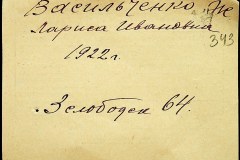 Васильченко
Лариса Ивановна
343
1922 г.
Злободск 64.